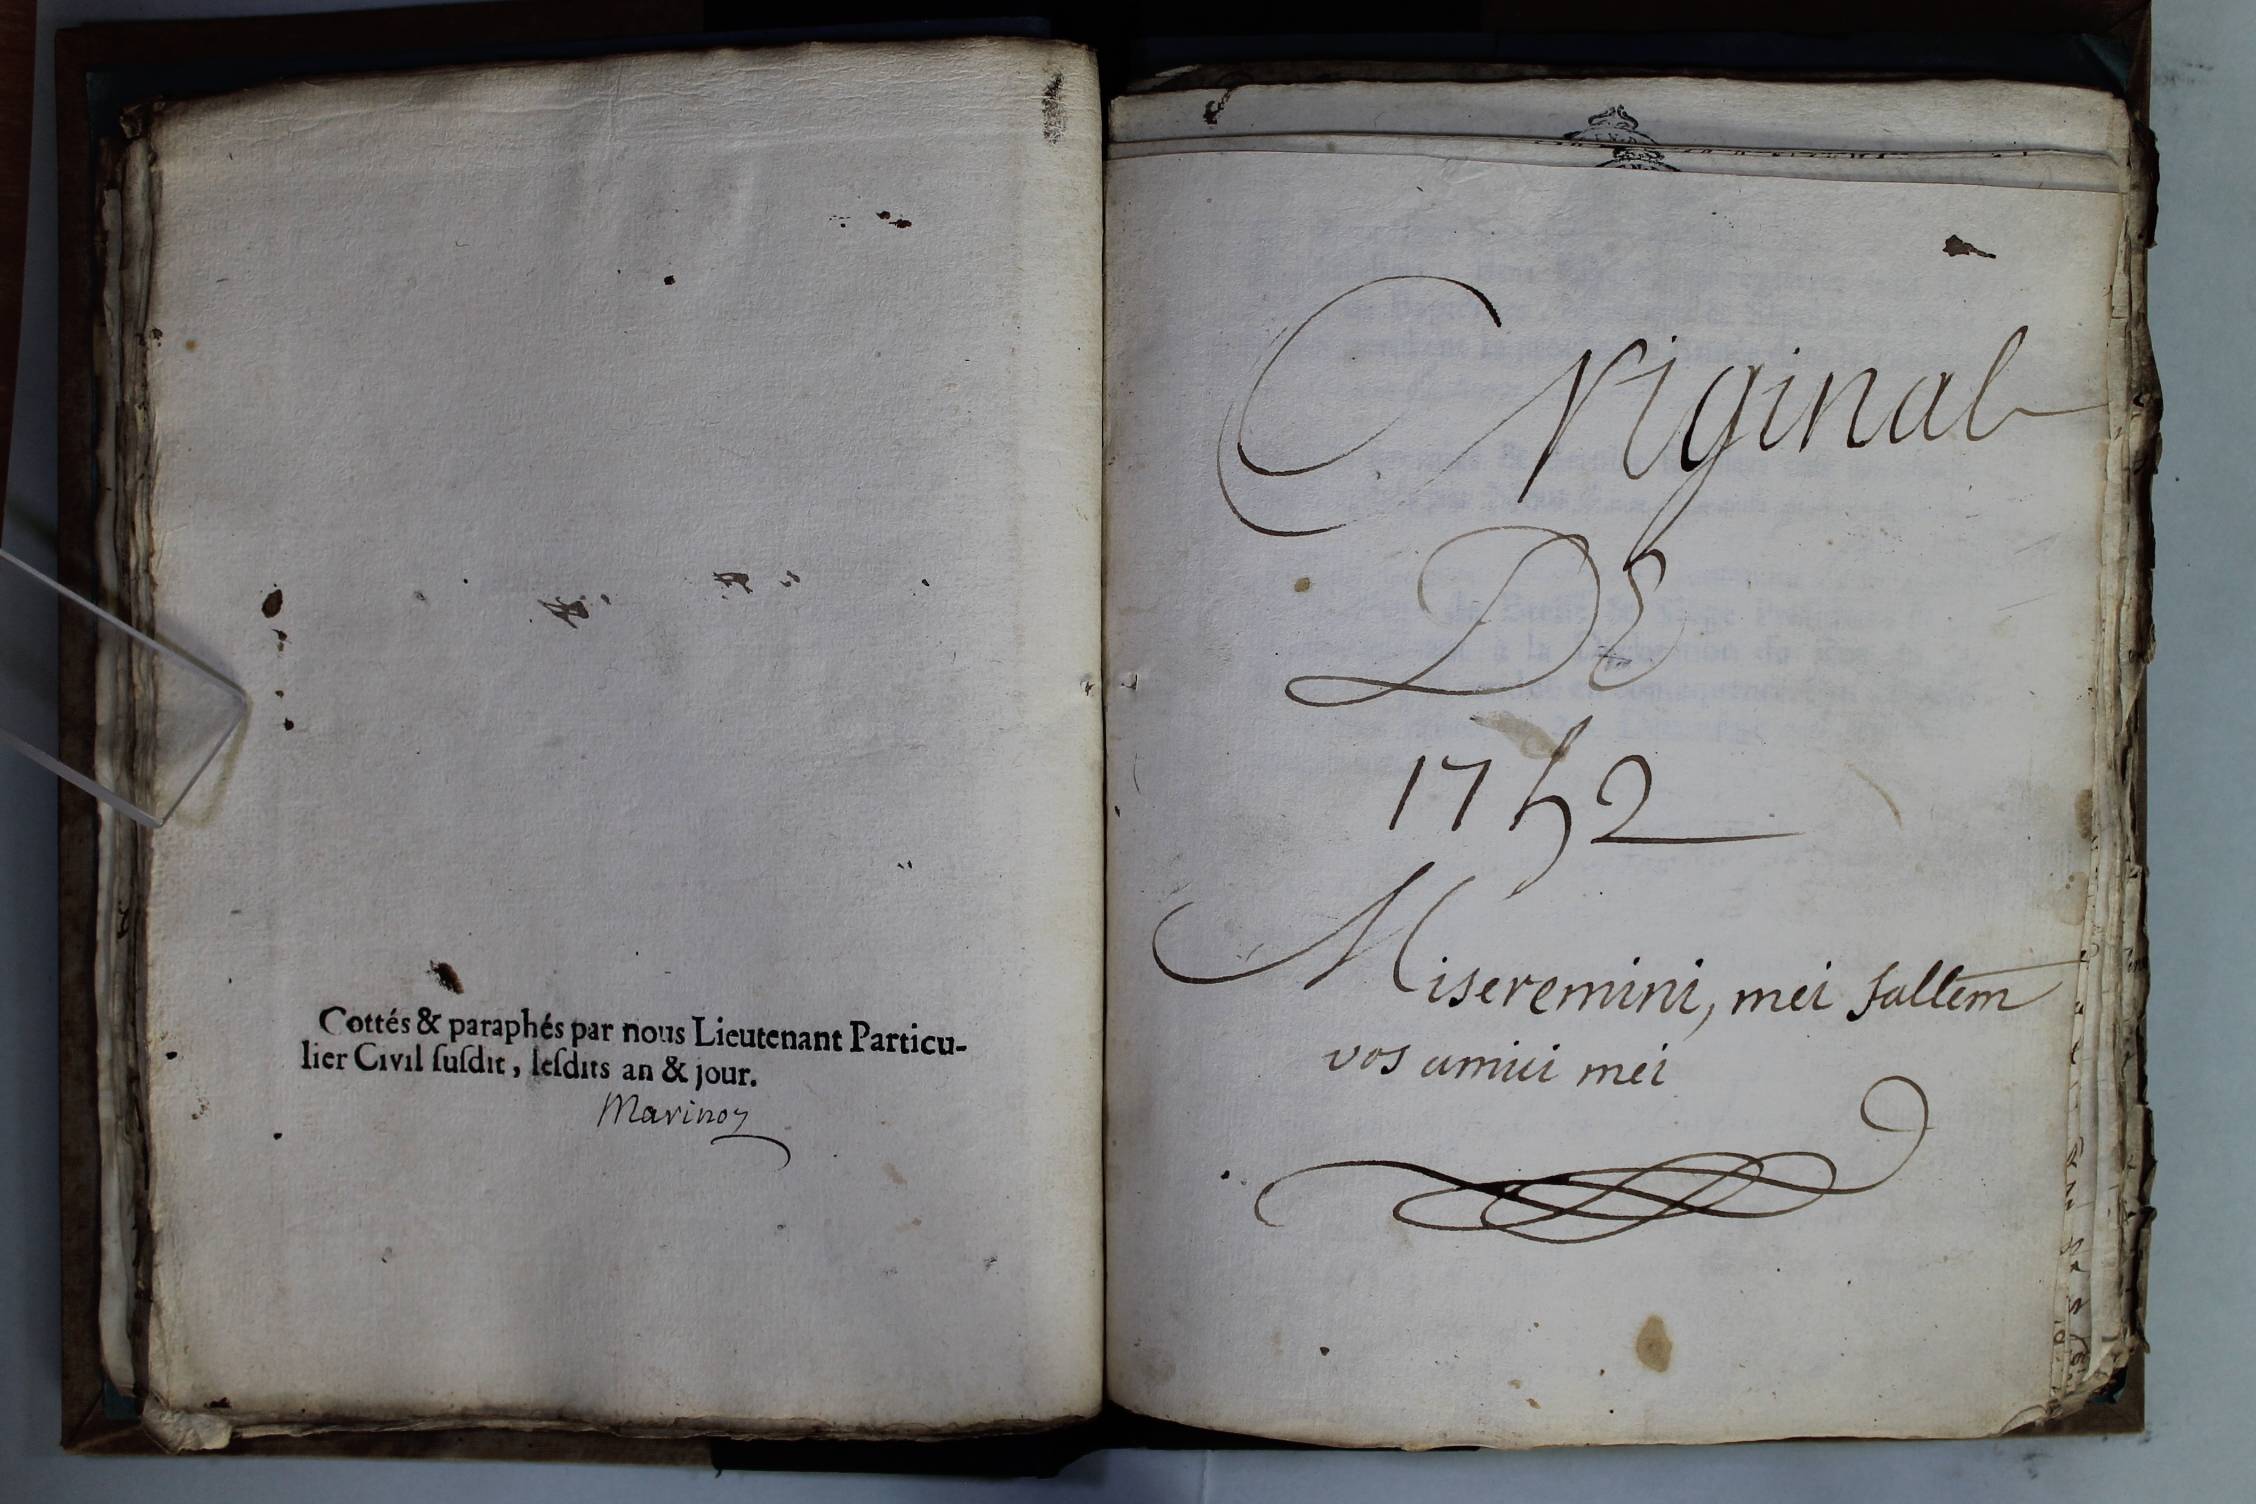 Cottés & paraphés par nous Lieutenant Particu-
lier Civil ſuſdit, leſdits an & jour.
Marinoy
Original
De
1752
Miseremini, mei saltem
vos amici mei